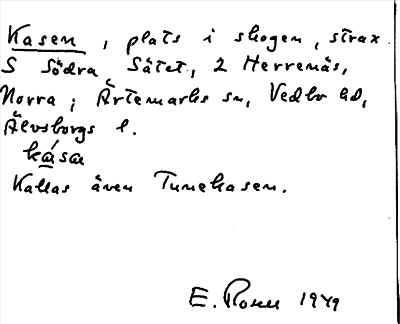 Kasen, plats i skogen, strax
S Södra Sätet, 2 Herrenäs,
Norra; Ärtemarks sn, Vedbo hd,
Älvsborgs l.
kása
Kallas även Tunekasen.
E. 1949